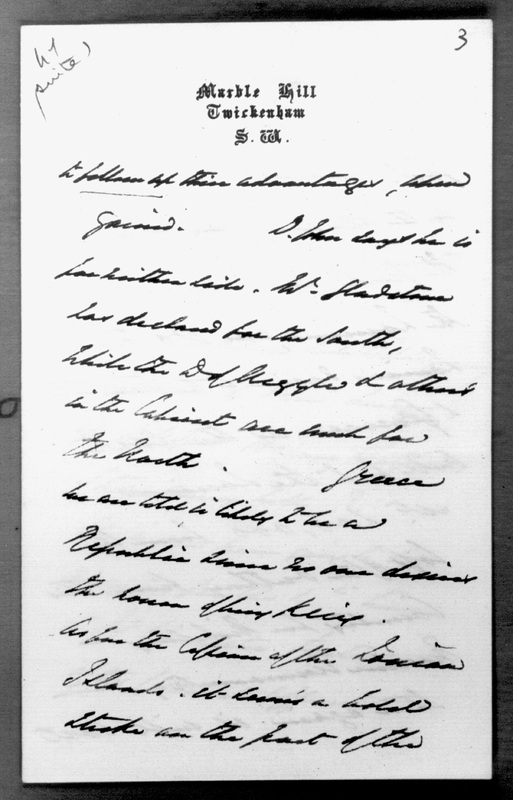 3
Marble Hill
Twickenham
S. W.
to follow up their advantages, when
gained. D. John says he is
for neither side. Mr Gladstone
has declared for the South,
while the D of Argyle & others
in the Cabinet are much for
the North. Greece
we are told is likely to be a
Republic since no one desires
the honor of being King.
As for the Cession of the Ionian
Islands. it seems a bold
stroke on the part of the